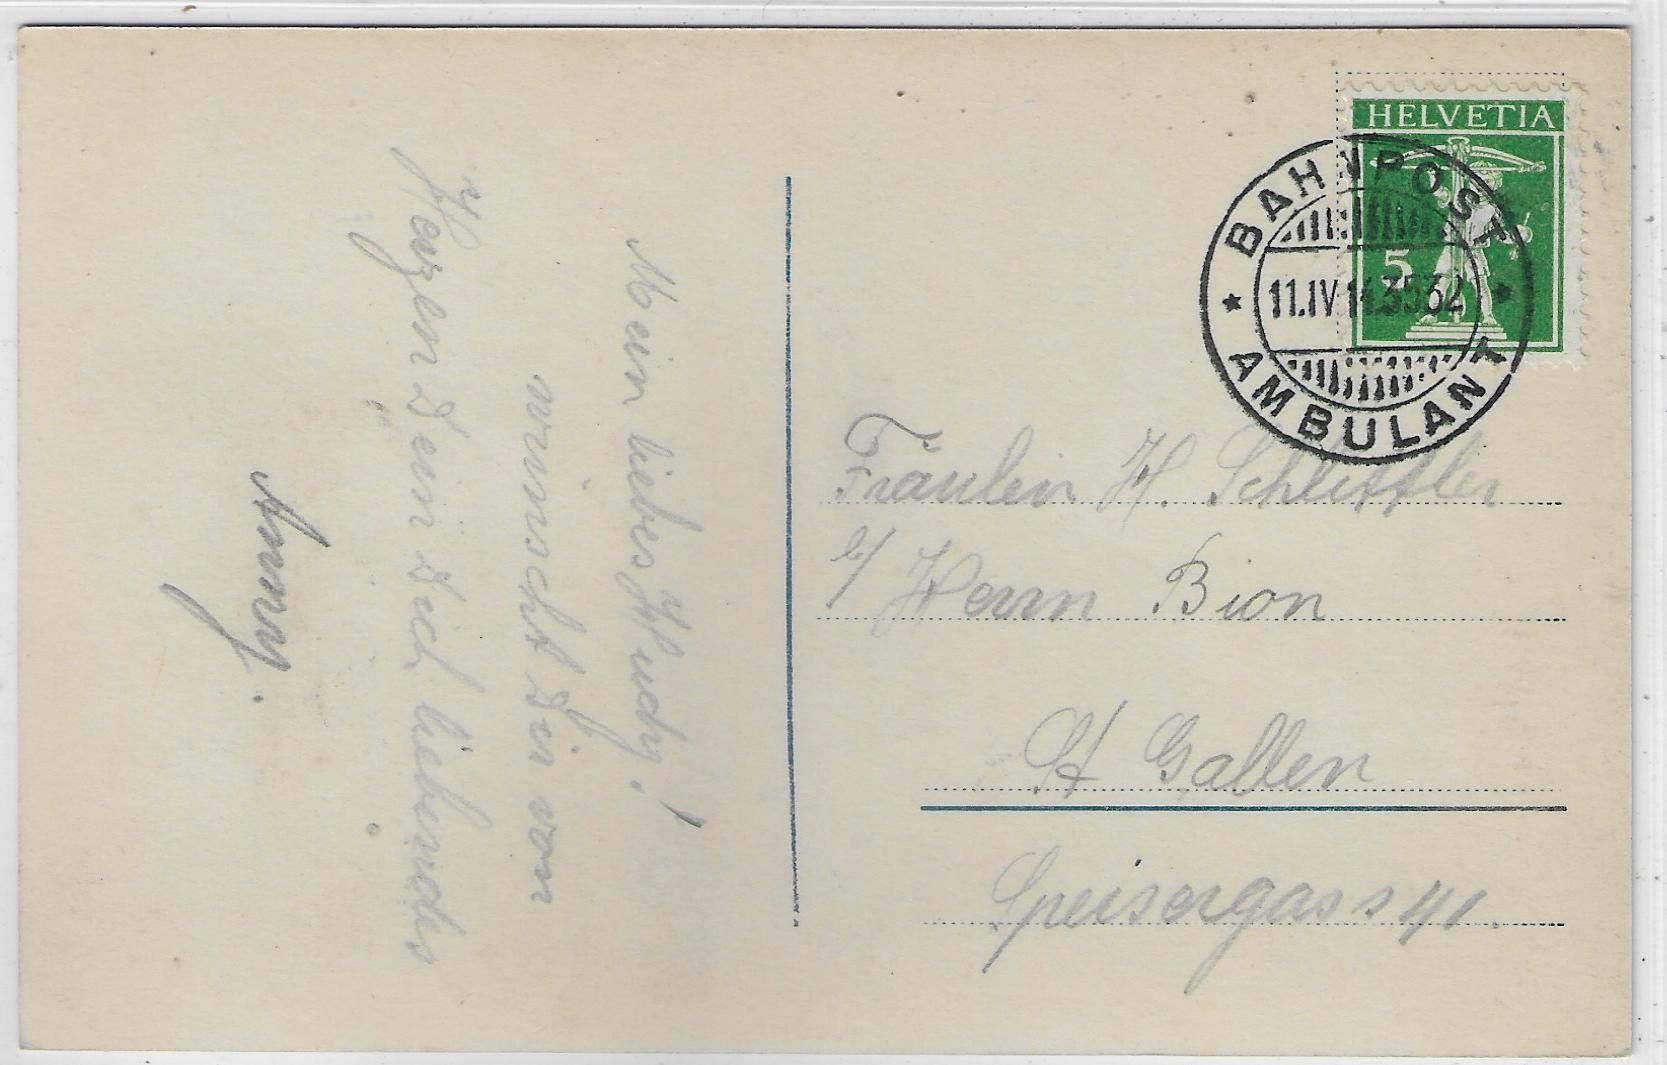 HELVETIA
5
BAHNPOST
11.IV 14.3532
AMBULANT
Fräulein H. Schlittler
b/ Herrn Bion
St Gallen
Speisergass 41.
Mein liebes Hedy!
wünscht Dir von
Herzen Dein Dich liebendes
Anny.